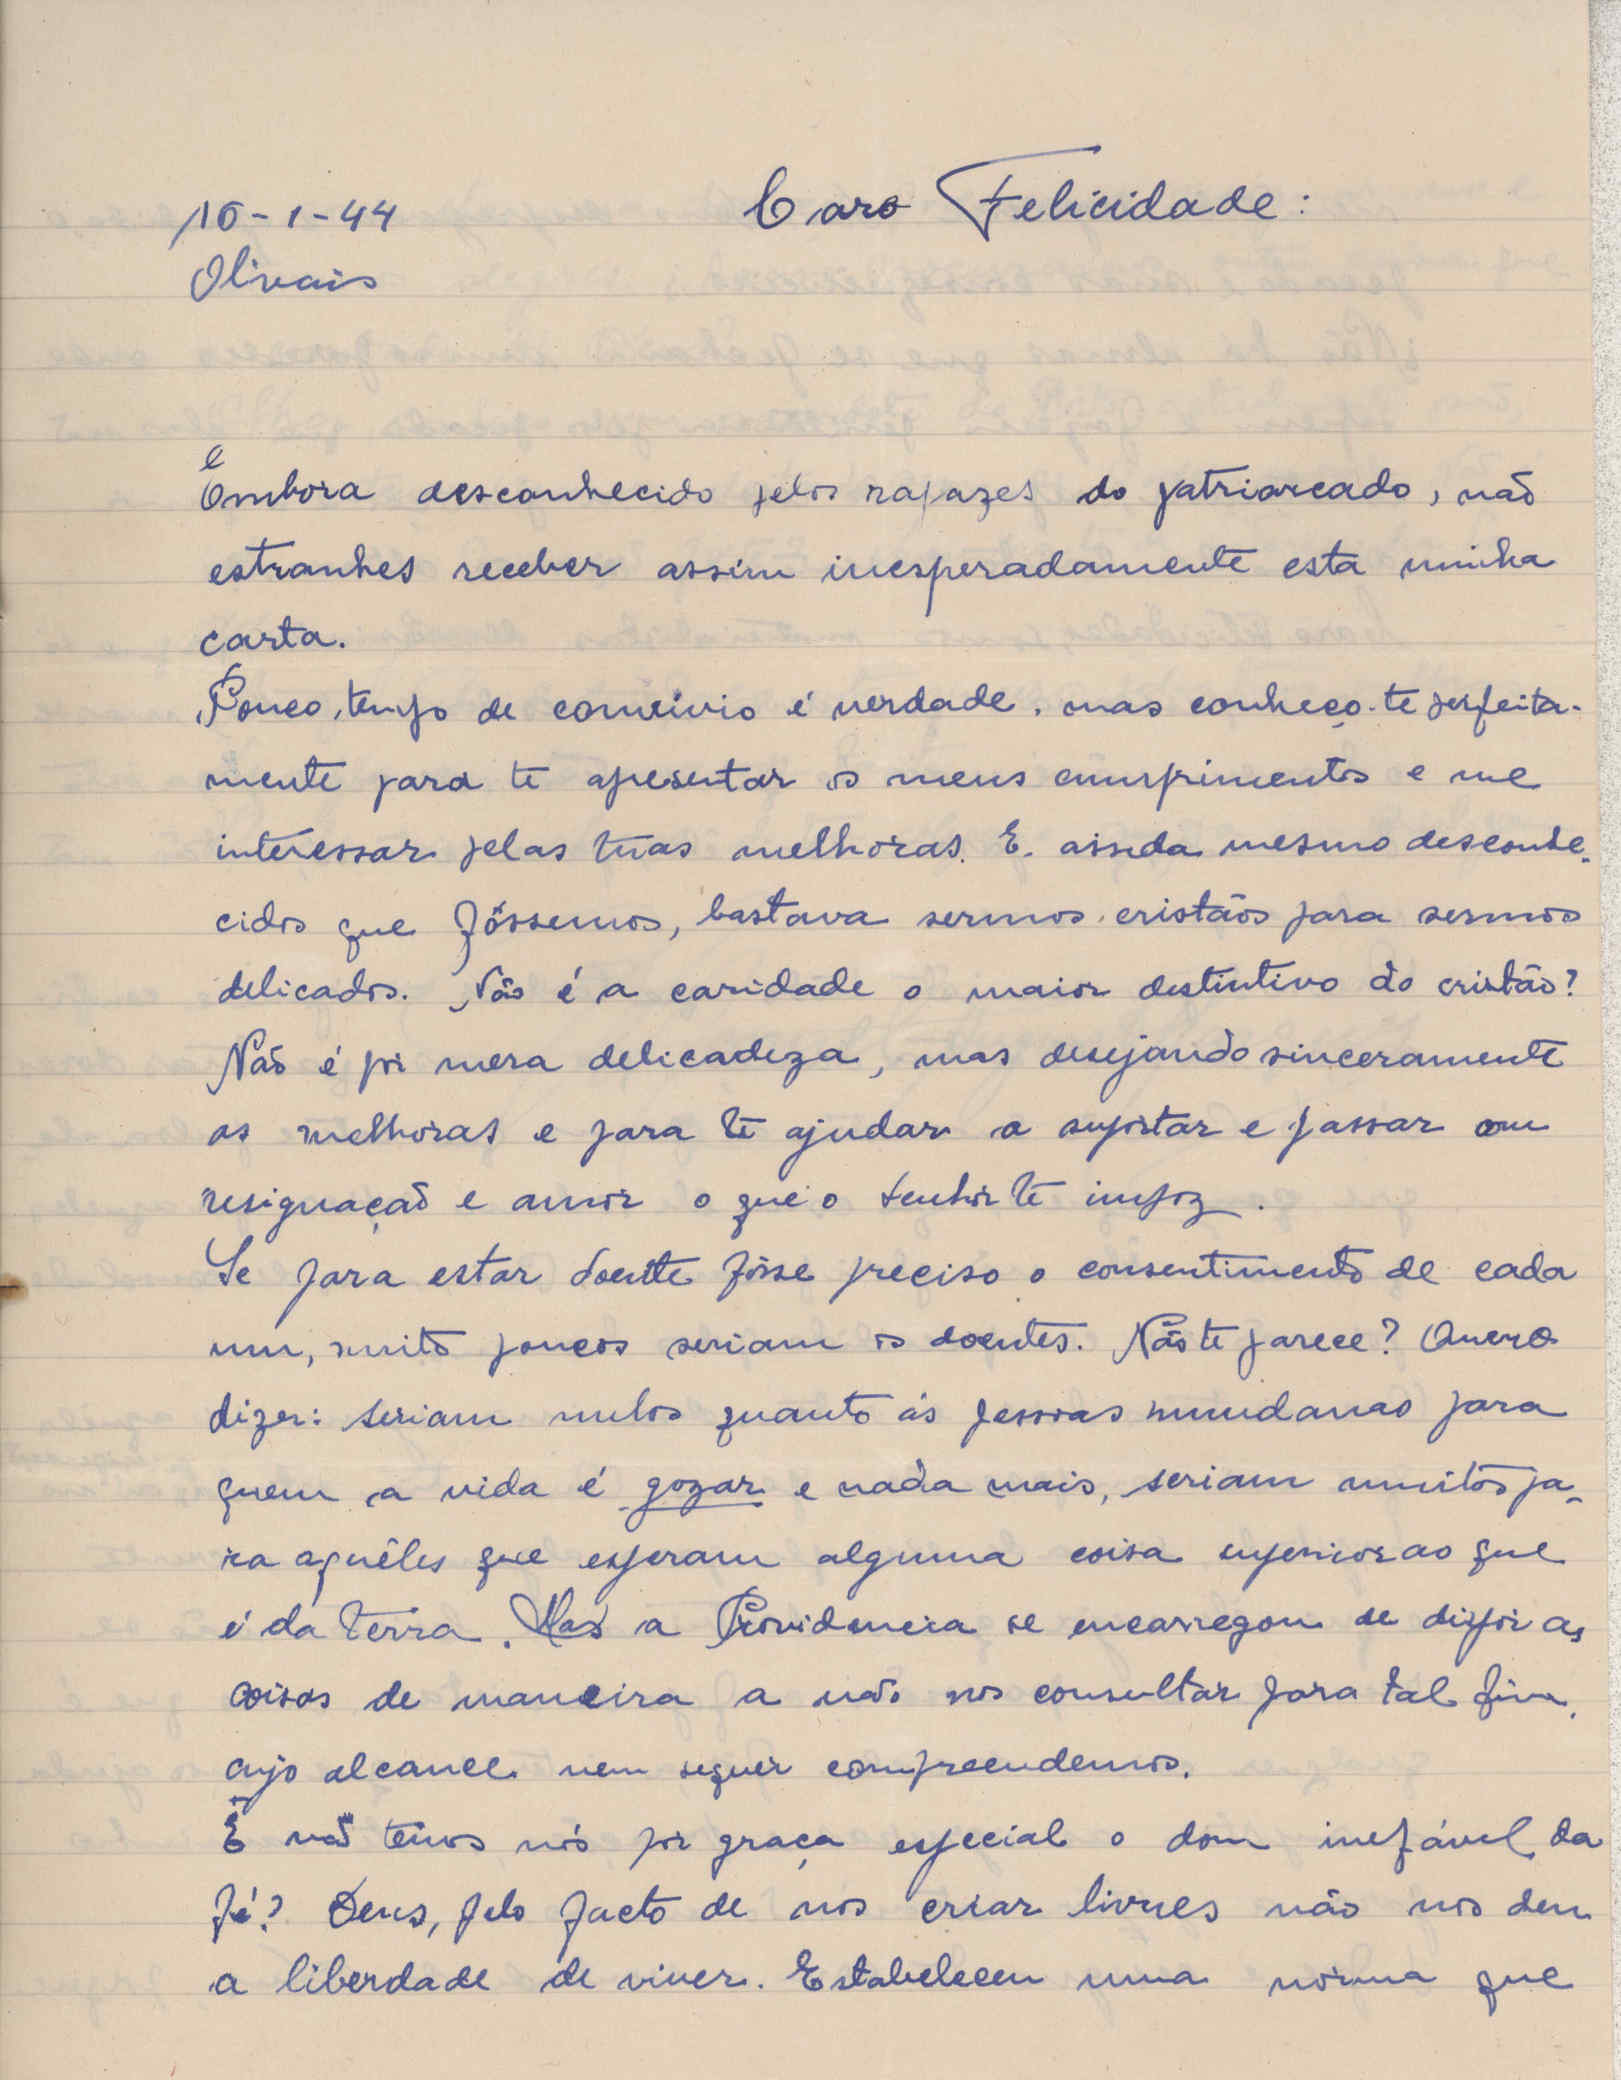 Caro Felicidade:
16-1-44
Olivais
Embora desconhecido pelos rapazes do patriarcado, não
estranhes receber assim inesperadamente esta minha
carta.
Pouco tempo de convívio é verdade, mas conheço-te perfeita-
mente para te apresentar os meus cumprimentos e me
interessar pelas tuas melhoras. E ainda mesmo desconhe-
cidos que fôssemos, bastava sermos cristãos para sermos
delicados. Não é a caridade o maior destintivo do cristão?
Não é por mera delicadeza, mas desejando sinceramente
as melhoras e para te ajudar a suportar e passar com
resignação e amor o que o Senhor te impoz.
Se para estar doente fôsse preciso o consentimento de cada
um, muito poucos seriam os doentes. Não te parece? Quero
dizer: seriam nulos quanto ás pessoas mundanas para
quem a vida é gozar e nada mais, seriam muitos pa-
ra aquêles que esperam alguma coisa superior ao que
é da terra. Mas a Providencia se encarregou de dispor as
coisas de maneira a não nos consultar para tal fim,
cujo alcance nem sequer compreendemos.
E não temos nós por graça especial o dom inefável da
fé? Deus, pelo facto de nos criar livres não nos deu
a liberdade de viver. Estabeleceu uma norma que